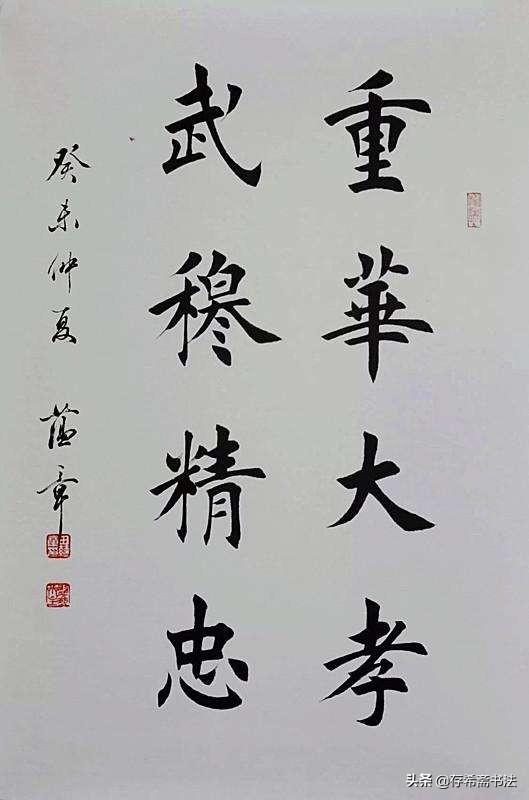 重華大孝
武穆精忠
癸未仲夏 蕴章
头条 @存希斋书法